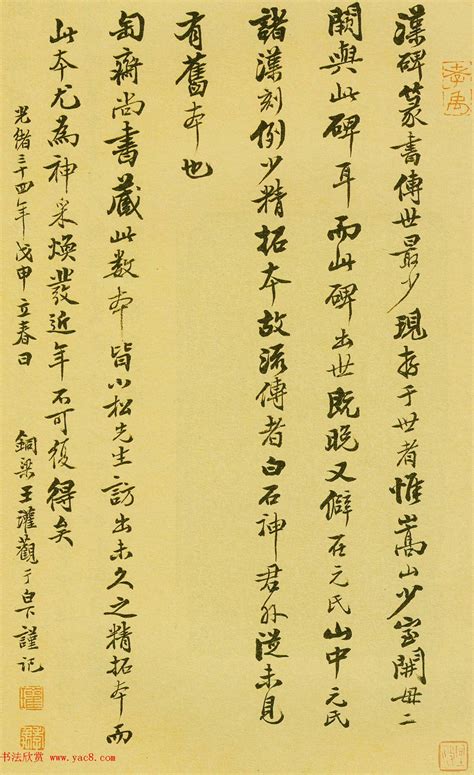 漢碑篆書傳世最少現存于世者惟嵩山少室開母二
闕與此碑耳而此碑出世既晚又僻在元氏山中元氏
諸漢刻例少精拓本故流傳者白石神君外從未見
有舊本也
匋齋尚書藏此數本皆小松先生訪出未久之精拓本而
此本尤為神采煥發近年不可復得矣
光緒三十四年戊申立春日
銅梁王瓘觀于白下謹記
书法欣赏 www.yac8.com